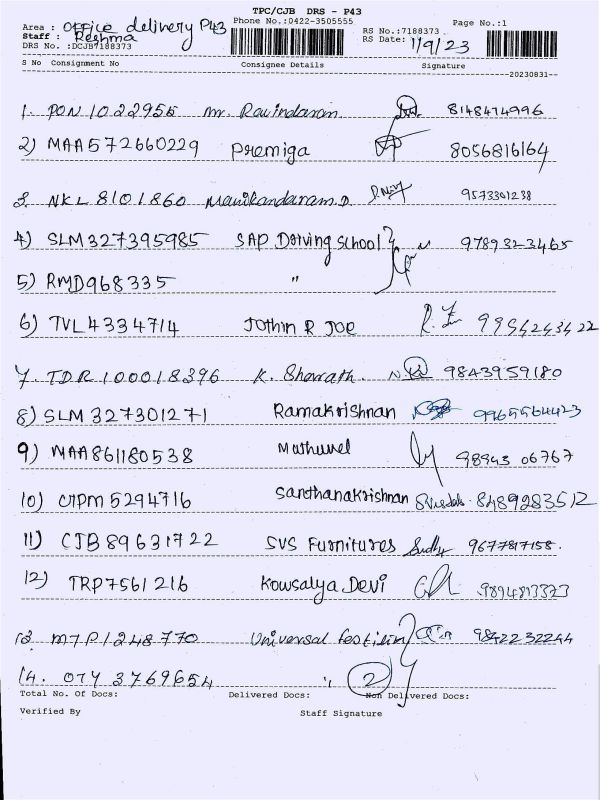 TPC/CJB DRS - P43
Area : Office delivery P43 Phone No.:0422-3505555 Page No.:1
Staff : Reshma RS No.:7188373
DRS No. :DCJB7188373 RS Date: 1/9/23
S No Consignment No Consignee Details Signature
20230831
1. PON 1022955 Mr. Ravindaran 8148474996
2) MAA572660229 Premiga 8056816164
3. NKL 8101860 Manikandaram.D 9573301238
4) SLM327395985 SAP Dorving School 9789323465
5) RMD968335 "
6) TVL4334714 Jothin R Joe 9954243422
7. TDR 100018396 K. Sharath. 9843959180
8) SLM 327301271 Ramakrishnan 9965564423
9) MAA861180538 Mathuvel 98943 06767
10) CTPM5294716 Santhanakrishnan 8489283512
11) CJB 89631722 SVS Furnitures 9677817158.
12) TRP7561216 Kowsalya Devi 9894813323
13. MTP1248770 Universal 9842232244
14. OTY 3769654 " 2
Total No. Of Docs: Delivered Docs: Non Delivered Docs:
Verified By Staff Signature